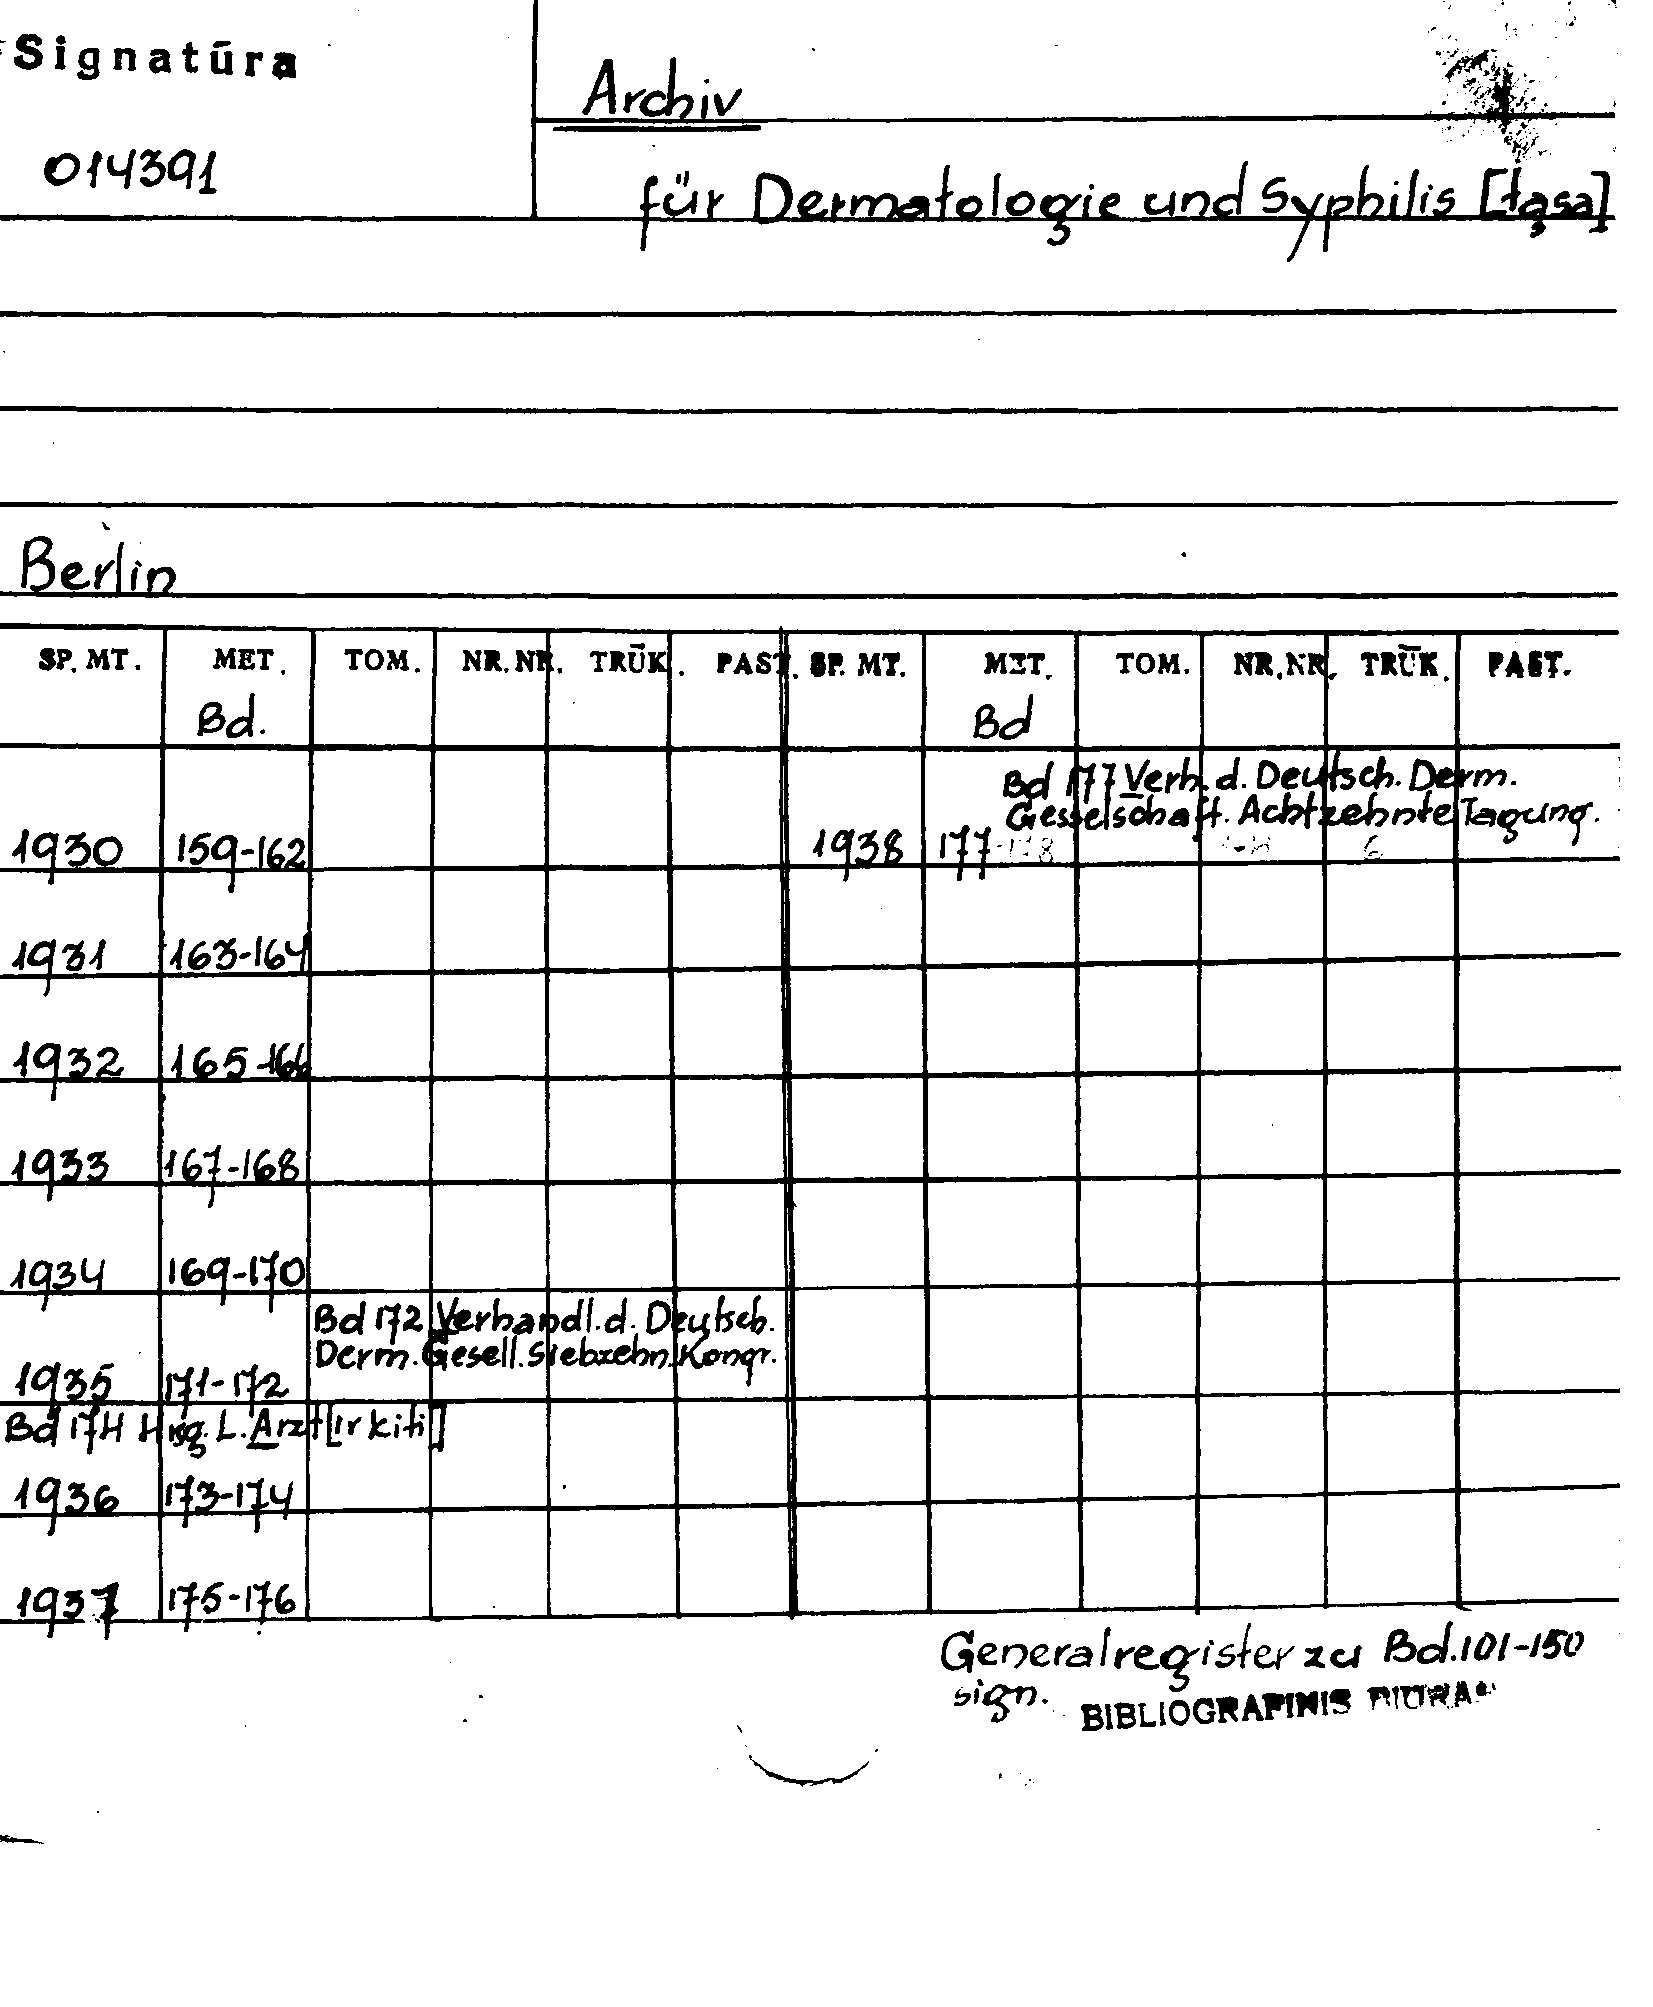 Signatūra
Archiv
014391
für Dermatologie und Syphilis [tąsa]
Berlin
SP. MT. MET. TOM. NR. NR. TRŪK. PAST. SP. MT. MET. TOM. NR. NR. TRŪK. PAST.
Bd. Bd
Bd 177 Verh. d. Deutsch. Derm.
Gesselschaft. Achtzehnte Tagung.
1930 159-162 1938 177
1931 163-164
1932 165-166
1933 167-168
1934 169-170
Bd 172 Verhandl. d. Deutsch.
Derm. Gesell. Siebzehn. Kongr.
1935 171-172
Bd 174 Hrsg. L. Arzt [ir kiti]
1936 173-174
1937 175-176
Generalregister zu Bd. 101-150
sign. BIBLIOGRAFINIS